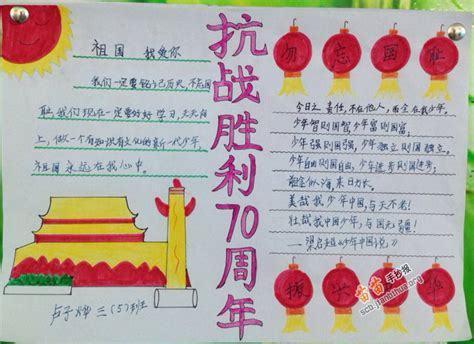 抗战胜利70周年
祖国 我爱你
我们一定要铭记历史,不忘国
耻,我们现在一定要好好学习,天天向
上,做一个有知识有文化的新一代少年,
祖国永远在我心中。
卢子烨 三(5)班
勿忘国耻
今日之责任,不在他人,而全在我少年。
少年智则国智,少年富则国富;
少年强则国强,少年独立则国独立;
少年自由则国自由,少年进步则国进步;
前途似海,来日方长。
美哉我少年中国,与天不老!
壮哉我中国少年,与国无疆!
——梁启超《少年中国说》
振兴中华
苗苗手抄报
scb.jianbihua.org